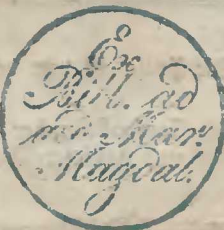 Ex
Bibl. ad
aed. Mar.
Magdal.